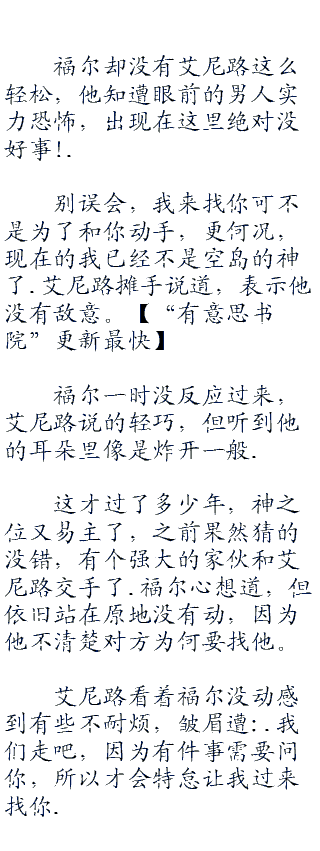 福尔却没有艾尼路这么
轻松，他知遭眼前的男人实
力恐怖，出现在这里绝对没
好事!.
别误会，我来找你可不
是为了和你动手，更何况，
现在的我已经不是空岛的神
了.艾尼路摊手说道，表示他
没有敌意。【“有意思书
院”更新最快】
福尔一时没反应过来，
艾尼路说的轻巧，但听到他
的耳朵里像是炸开一般.
这才过了多少年，神之
位又易主了，之前果然猜的
没错，有个强大的家伙和艾
尼路交手了.福尔心想道，但
依旧站在原地没有动，因为
他不清楚对方为何要找他。
艾尼路看着福尔没动感
到有些不耐烦，皱眉遭:.我
们走吧，因为有件事需要问
你，所以才会特怠让我过来
找你.